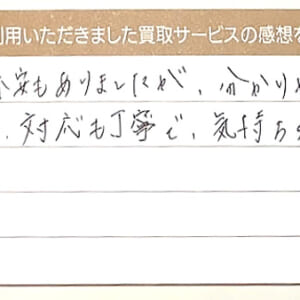 利用いただきました買取サービスの感想を
安もありましたが、分かりや
、対応も丁寧で、気持ち